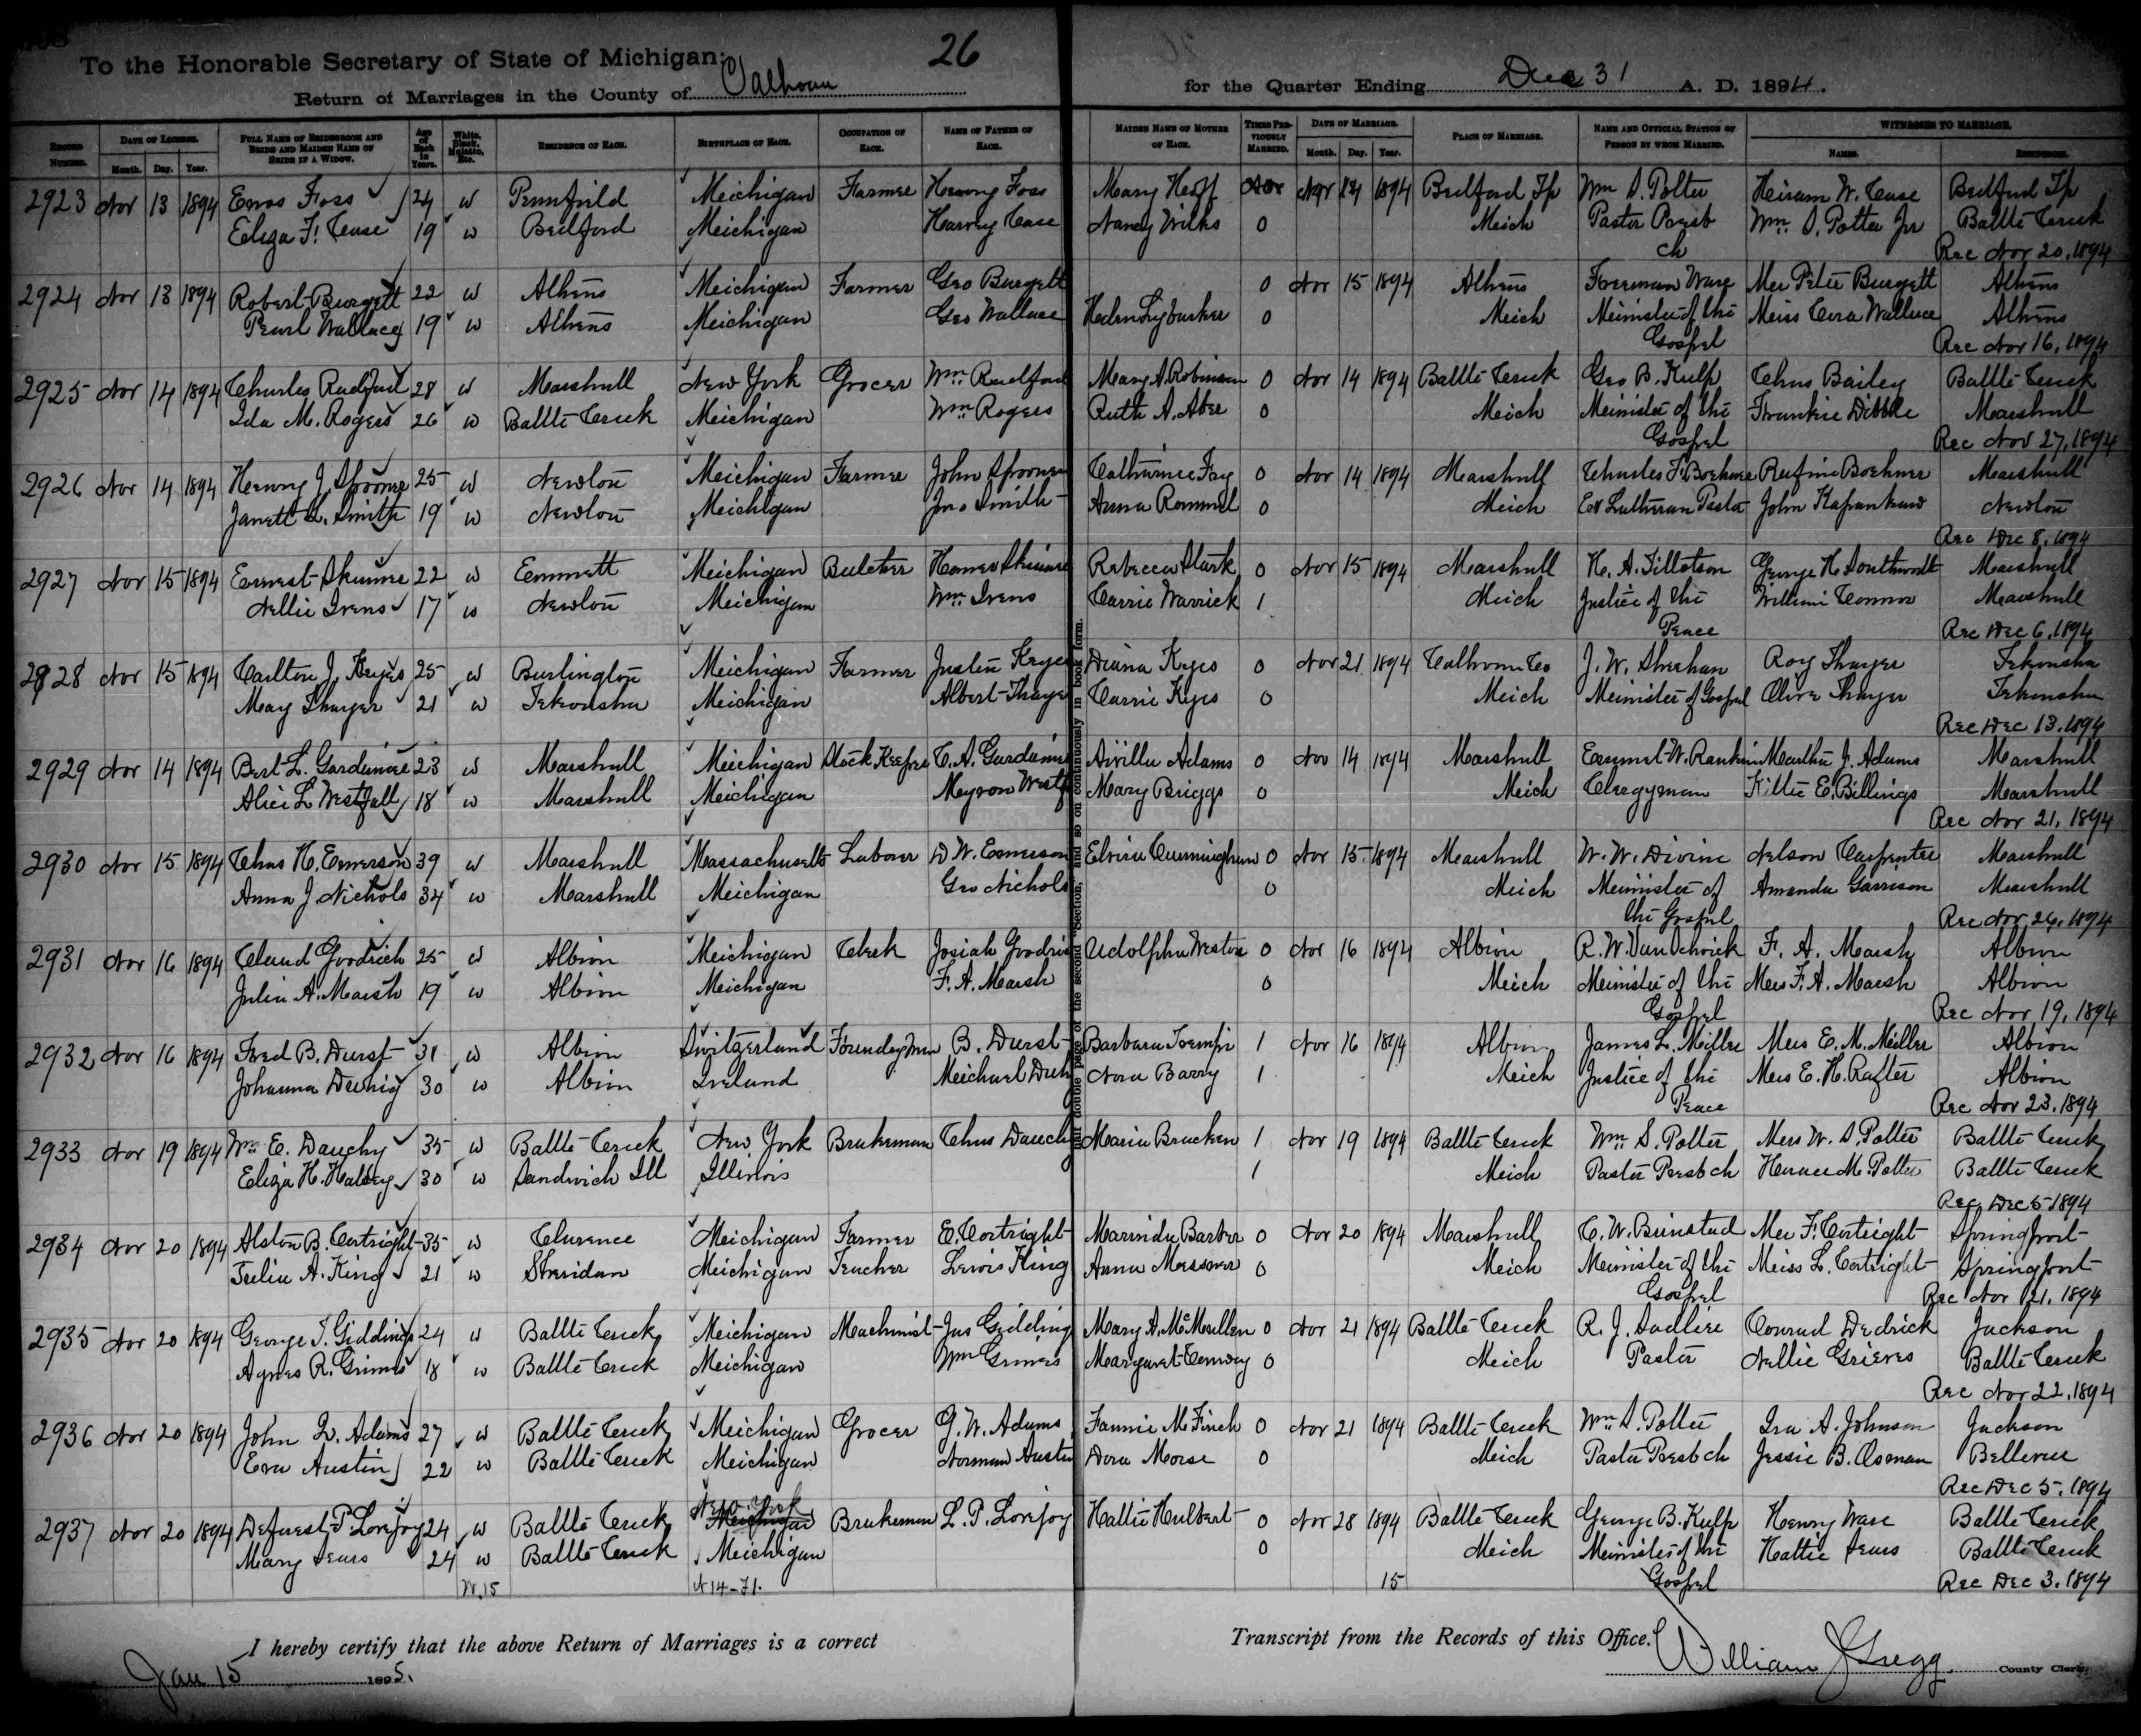 To the Honorable Secretary of State of Michigan: 26
Return of Marriages in the County of Calhoun for the Quarter Ending Dec 31 A. D. 1894.
RECORD NUMBER. DATE OF LICENSE. Month. Day. Year. FULL NAME OF BRIDEGROOM AND BRIDE AND MAIDEN NAME OF BRIDE IF A WIDOW. Age of Each in Years. White, Black, Mulatto, Etc. RESIDENCE OF EACH. BIRTHPLACE OF EACH. OCCUPATION OF EACH. NAME OF FATHER OF EACH. MAIDEN NAME OF MOTHER OF EACH. TIMES PREVIOUSLY MARRIED. DATE OF MARRIAGE. Month. Day. Year. PLACE OF MARRIAGE. NAME AND OFFICIAL STATION OF PERSON BY WHOM MARRIED. WITNESSES TO MARRIAGE. NAMES. RESIDENCE.
2923 Nov 13 1894 Enos Foss 24 W Pennfield Michigan Farmer Henry Foss Mary Hoff Nov 14 1894 Bedford Tp Wm S. Potter Hiram W. Cease Bedford Tp
Eliza F. Cease 19 W Bedford Michigan Harvey Cease Nancy Wilks 0 Mich Pastor Presb Wm. S. Potter Jr Battle Creek
ch Rec Nov 20, 1894
2924 Nov 13 1894 Robert Burgett 22 W Athens Michigan Farmer Geo Burgett 0 Nov 15 1894 Athens Freeman Ware Mr Peter Burgett Athens
Pearl Wallace 19 W Athens Michigan Geo Wallace Helen 0 Mich Minister of the Miss Cora Wallace Athens
Gospel Rec Nov 16, 1894
2925 Nov 14 1894 Charles Radford 28 W Marshall New York Grocer Wm Radford Mary A. Robinson 0 Nov 14 1894 Battle Creek Geo B. Kulp Chas Bailey Battle Creek
Ida M. Rogers 26 W Battle Creek Michigan Wm Rogers Ruth A. Aber 0 Mich Minister of the Frankie Dibble Marshall
Gospel Rec Nov 27, 1894
2926 Nov 14 1894 Henry J. Spooner 25 W Newton Michigan Farmer John Spooner Catharine Fay 0 Nov 14 1894 Marshall Charles F. Boehmer Rufine Boehmer Marshall
Janett L. Smith 19 W Newton Michigan Jno Smith Anna Rommel 0 Mich Ev Lutheran Pastor John Newton
Rec Dec 8, 1894
2927 Nov 15 1894 Earnest Skinner 22 W Emmett Michigan Butcher Homer Skinner Rebecca Stark 0 Nov 15 1894 Marshall H. A. Tillotson George H. Southworth Marshall
Nellie Ivens 17 W Newton Michigan Wm. Ivens Carrie Warrick 1 Mich Justice of the William Connor Marshall
Peace Rec Dec 6, 1894
2928 Nov 15 1894 Carlton J. Keyes 25 W Burlington Michigan Farmer Justin Keyes Diana Keyes 0 Nov 21 1894 Calhoun Co J. W. Sheehan Roy Thayer Tekonsha
May Thayer 21 W Tekonsha Michigan Albert Thayer Carrie Keyes 0 Mich Minister of Gospel Olive Thayer Tekonsha
Rec Dec 13, 1894
2929 Nov 14 1894 Bert L. Gardanier 23 W Marshall Michigan Stock Keeper C. A. Gardanier Avilla Adams 0 Nov 14 1894 Marshall Emmet W. Rankin Martha J. Adams Marshall
Alice L. Westfall 18 W Marshall Michigan Myron Westf Mary Briggs 0 Mich Clergyman Kittie E. Billings Marshall
Rec Nov 21, 1894
2930 Nov 15 1894 Chas H. Emerson 39 W Marshall Massachusetts Laborer D. W. Emerson Elvira Cunningham 0 Nov 15 1894 Marshall W. W. Divine Nelson Carpenter Marshall
Anna J Nichols 34 W Marshall Michigan Geo Nichols 0 Mich Minister of Amanda Garrison Marshall
the Gospel Rec Nov 26, 1894
2931 Nov 16 1894 Claud Goodrich 25 W Albion Michigan Clerk Josiah Goodric Adolpha Weston 0 Nov 16 1894 Albion R. W. Van Schoick F. A. Marsh Albion
Julia A. Marsh 19 W Albion Michigan F. A. Marsh 0 Mich Minister of the Mrs F. A. Marsh Albion
Gospel Rec Nov 19, 1894
2932 Nov 16 1894 Fred B. Durst 31 W Albion Switzerland Foundry man B. Durst Barbara 1 Nov 16 1894 Albion James L. Miller Mrs E. M. Miller Albion
Johanna Dewhig 30 W Albion Ireland Michael Nora Barry 1 Mich Justice of the Mrs E. H. Rafter Albion
Peace Rec Nov 23, 1894
2933 Nov 19 1894 Wm E. Dauchy 35 W Battle Creek New York Brakeman Chas Dauchy Maria Bracken 1 Nov 19 1894 Battle Creek Wm. S. Potter Mrs W. S. Potter Battle Creek
Eliza H. Halsey 30 W Sandwich Ill Illinois 1 Mich Pastor Presb ch Horace M. Potter Battle Creek
Rec Dec 5 1894
2934 Nov 20 1894 Alston B. Cortright 35 W Clarence Michigan Farmer E. Cortright Marinda Barber 0 Nov 20 1894 Marshall C. W. Mr F. Cortright Springport
Julia A. King 21 W Sheridan Michigan Teacher Lewis King Anna Messner 0 Mich Minister of the Miss L. Cortright Springport
Gospel Rec Nov 21, 1894
2935 Nov 20 1894 George T. Giddings 24 W Battle Creek Michigan Machinist Jas Gidding Mary A. McMullen 0 Nov 21 1894 Battle Creek R. J. Sadlier Conrad Dedrick Jackson
Agnes R. Grimes 18 W Battle Creek Michigan Wm Grimes Margaret Conway 0 Mich Pastor Nellie Grieves Battle Creek
Rec Nov 22, 1894
2936 Nov 20 1894 John Q. Adams 27 W Battle Creek Michigan Grocer G. W. Adams Fannie McFinch 0 Nov 21 1894 Battle Creek Wm. S. Potter Ira A. Johnson Jackson
Eva Austin 22 W Battle Creek Michigan Norman Austin Dora Morse 0 Mich Pastor Presb ch Jessie B. Osman Bellevue
Rec Dec 5, 1894
New York
2937 Nov 20 1894 Deforest P. Lovejoy 24 W Battle Creek Michigan Brakeman L. P. Lovejoy Hattie Hulbert 0 Nov 28 1894 Battle Creek George B. Kulp Henry Ware Battle Creek
Mary Sears 24 W Battle Creek Michigan 0 Mich Minister of the Hattie Sears Battle Creek
W. 15 15 Gospel Rec Dec 3, 1894
half double page of the second "Section," and so on continuously in book form.
I hereby certify that the above Return of Marriages is a correct Transcript from the Records of this Office.
Jan 15 1895. William J Gregg County Clerk.